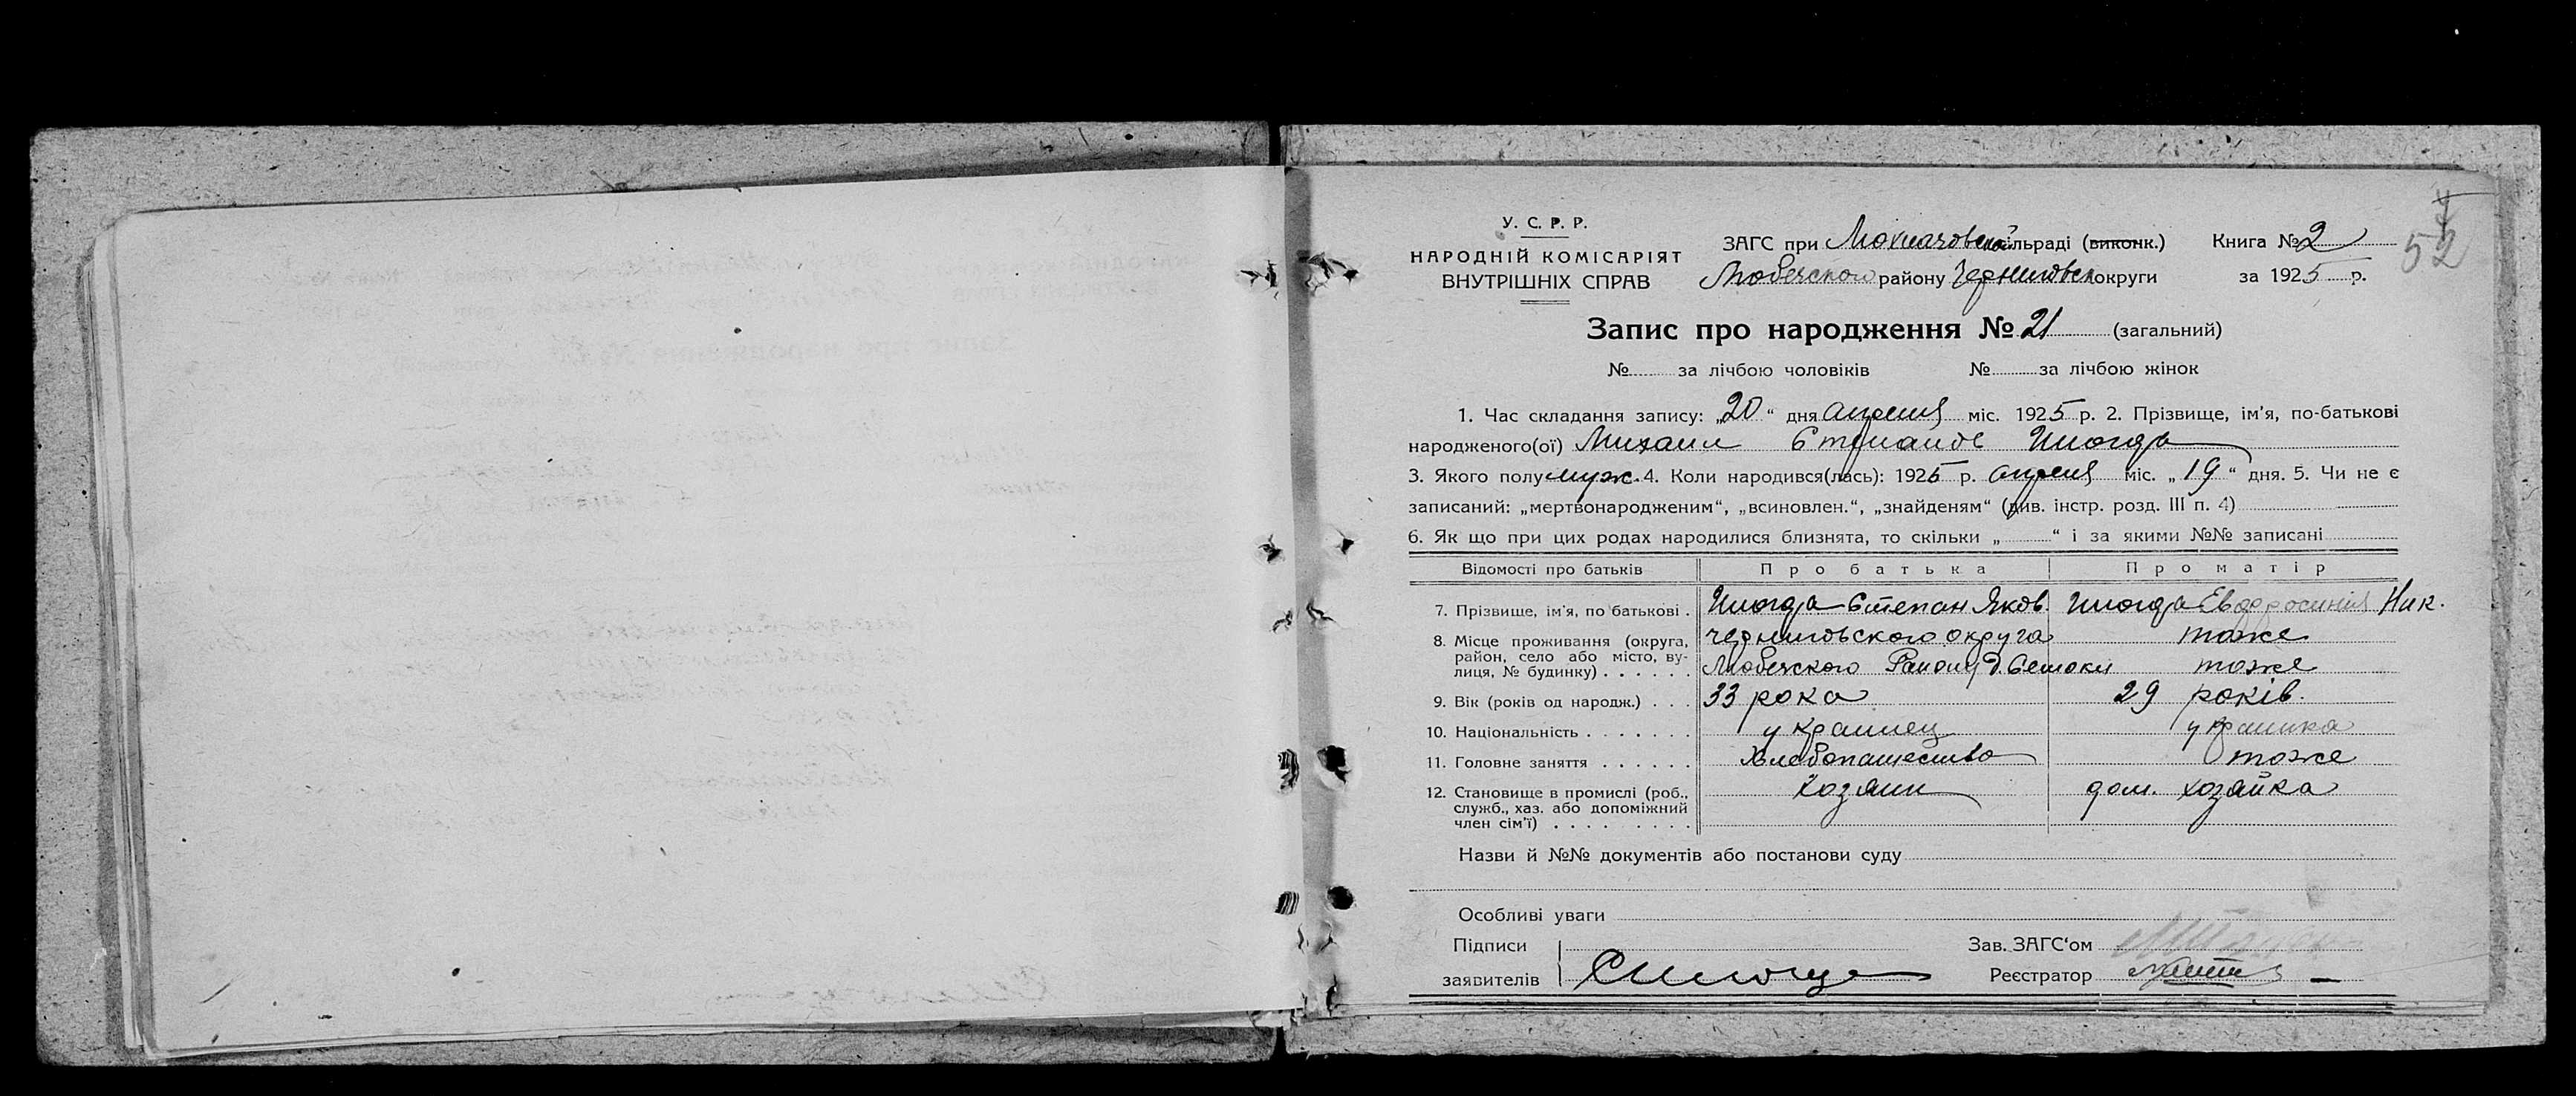 52
У. С. Р. Р.
НАРОДНІЙ КОМІСАРІЯТ
ВНУТРІШНІХ СПРАВ
ЗАГС при сільраді (виконк.)
Любечского району Черниговск округи
Книга № 2
за 1925 р.
Запис про народження № 21 (загальний)
№ за лічбою чоловіків № за лічбою жінок
1. Час складання запису: „20“ дня апреля міс. 1925 р. 2. Прізвище, ім'я, по-батькові
народженого(ої) Михаил
3. Якого полу муж. 4. Коли народився(лась): 1925 р. апреля міс. „19“ дня. 5. Чи не є
записаний: „мертвонародженим“, „всиновлен.“, „знайденям“ (див. інстр. розд. III п. 4)
6. Як що при цих родах народилися близнята, то скільки „ “ і за якими №№ записані
Відомості про батьків Про батька Про матір
7. Прізвище, ім'я, по батькові . Степан Яков. Евдросиния Ник.
8. Місце проживання (округа, район, село або місто, вулиця, № будинку) . . . . . . черниговського округа тоже
Любечского Району д. тоже
9. Вік (років од народж.) . . . 33 рока 29 років.
10. Національність . . . . . . . украинец украинка
11. Головне заняття . . . . . . Хлебопашество тоже
12. Становище в промислі (роб., служб., хаз. або допоміжний член сім'ї) . . . . . . . . . хозяин дом. хозяйка
Назви й №№ документів або постанови суду
Особливі уваги
Підписи
заявителів
Зав. ЗАГС‘ом
Реєстратор